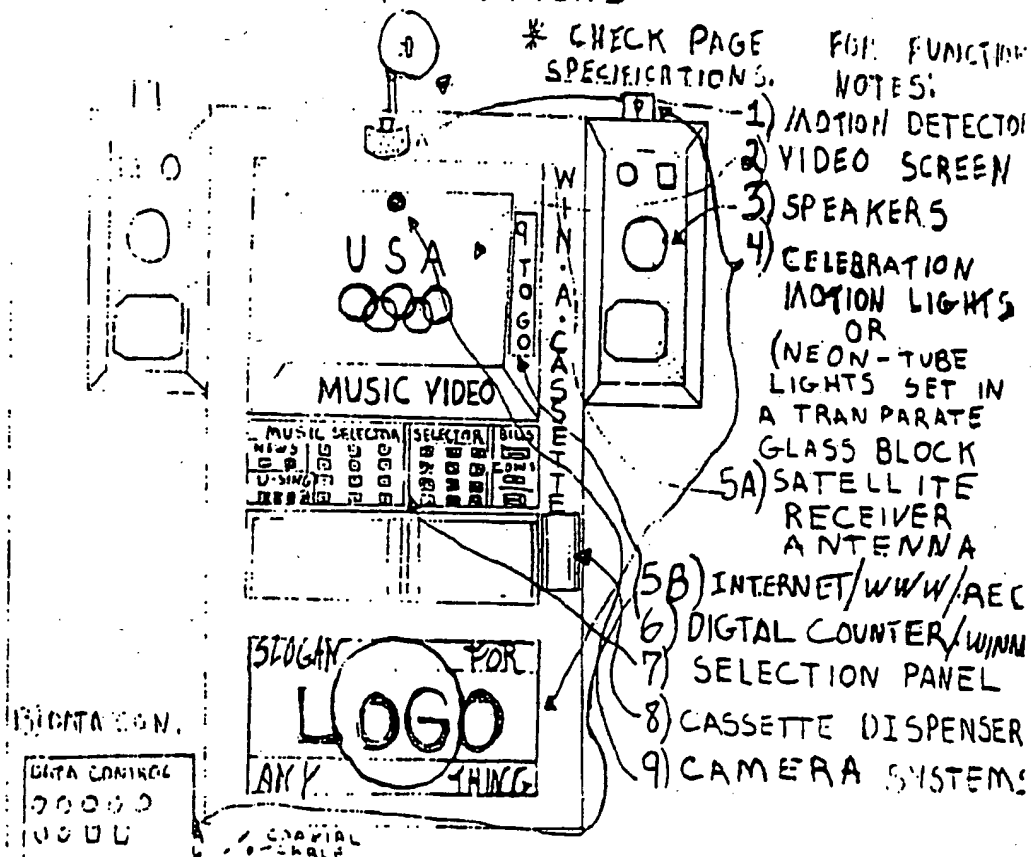 * CHECK PAGE FOR FUNCTION
SPECIFICATIONS. NOTES:
1) MOTION DETECTOR
2) VIDEO SCREEN
3) SPEAKERS
4) CELEBRATION
MOTION LIGHTS
OR
(NEON-TUBE
LIGHTS SET IN
A TRANPARATE
GLASS BLOCK
5A) SATELLITE
RECEIVER
ANTENNA
5B) INTERNET/WWW/REC
6) DIGTAL COUNTER/WINN
7) SELECTION PANEL
8) CASSETTE DISPENSER
9) CAMERA SYSTEMS
USA
9 TO GO
WIN·A·CASSETTE
MUSIC VIDEO
MUSIC SELECTOR SELECTOR BILLS
NEWS COINS
U-SING
SLOGAN FOR
LOGO
ANY THING
13) DATA CON.
DATA CONTROL
COAXIAL
CABLE